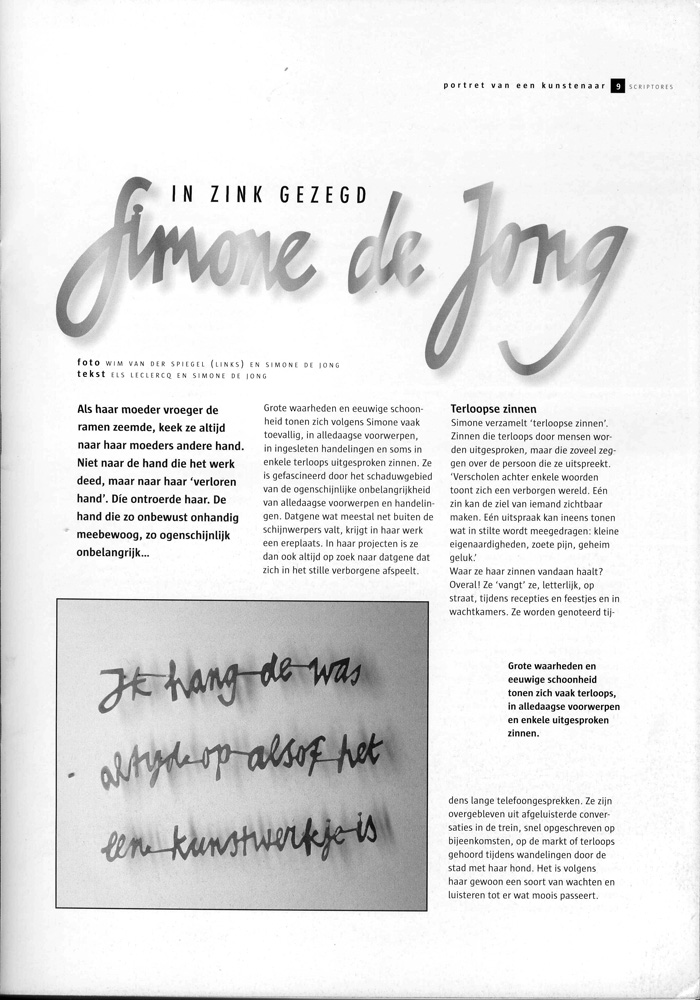 portret van een kunstenaar 9 SCRIPTORES
IN ZINK GEZEGD
Simone de Jong
foto WIM VAN DER SPIEGEL (LINKS) EN SIMONE DE JONG
tekst ELS LECLERCQ EN SIMONE DE JONG
Als haar moeder vroeger de
ramen zeemde, keek ze altijd
naar haar moeders andere hand.
Niet naar de hand die het werk
deed, maar naar haar ‘verloren
hand’. Díe ontroerde haar. De
hand die zo onbewust onhandig
meebewoog, zo ogenschijnlijk
onbelangrijk...
Grote waarheden en eeuwige schoon-
heid tonen zich volgens Simone vaak
toevallig, in alledaagse voorwerpen,
in ingesleten handelingen en soms in
enkele terloops uitgesproken zinnen. Ze
is gefascineerd door het schaduwgebied
van de ogenschijnlijke onbelangrijkheid
van alledaagse voorwerpen en handelin-
gen. Datgene wat meestal net buiten de
schijnwerpers valt, krijgt in haar werk
een ereplaats. In haar projecten is ze
dan ook altijd op zoek naar datgene dat
zich in het stille verborgene afspeelt.
Terloopse zinnen
Simone verzamelt ‘terloopse zinnen’.
Zinnen die terloops door mensen wor-
den uitgesproken, maar die zoveel zeg-
gen over de persoon die ze uitspreekt.
‘Verscholen achter enkele woorden
toont zich een verborgen wereld. Eén
zin kan de ziel van iemand zichtbaar
maken. Eén uitspraak kan ineens tonen
wat in stilte wordt meegedragen: kleine
eigenaardigheden, zoete pijn, geheim
geluk.’
Waar ze haar zinnen vandaan haalt?
Overal! Ze ‘vangt’ ze, letterlijk, op
straat, tijdens recepties en feestjes en in
wachtkamers. Ze worden genoteerd tij-
Grote waarheden en
eeuwige schoonheid
tonen zich vaak terloops,
in alledaagse voorwerpen
en enkele uitgesproken
zinnen.
dens lange telefoongesprekken. Ze zijn
overgebleven uit afgeluisterde conver-
saties in de trein, snel opgeschreven op
bijeenkomsten, op de markt of terloops
gehoord tijdens wandelingen door de
stad met haar hond. Het is volgens
haar gewoon een soort van wachten en
luisteren tot er wat moois passeert.
Ik hang de was
altijd op alsof het
een kunstwerkje is